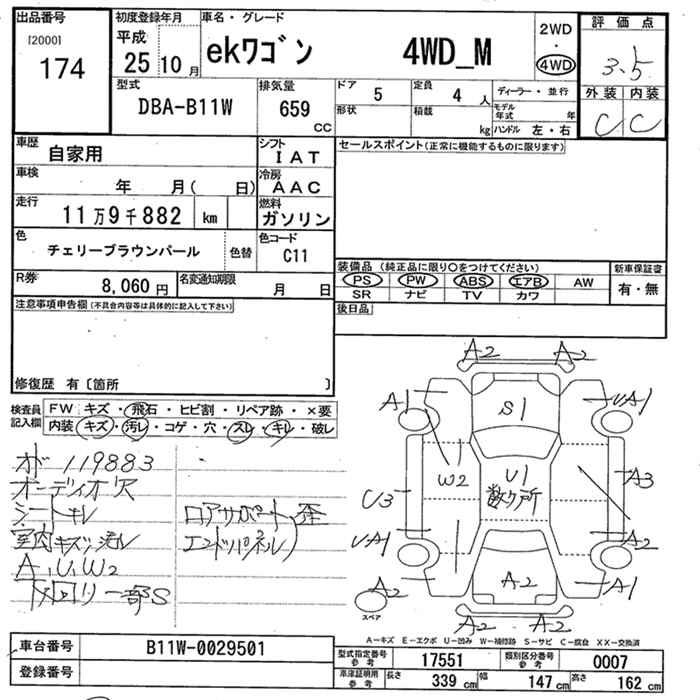 出品番号
[2000]
174
初度登録年月
平成
25 10月
車名・グレード
ekワゴン 4WD_M
2WD
・
4WD
評価点
3.5
外装 内装
C C
型式
DBA-B11W
排気量
659 CC
ドア 5
形状
定員 4 人
積載 kg
ディーラー・並行
モデル年式 年
ハンドル 左・右
車歴 自家用
車検 年 月( 日)
走行 11万9千882 km
シフト IAT
冷房 AAC
燃料 ガソリン
色 チェリーブラウンパール
色替
色コード C11
R券 8,060円
名変通知期限 月 日
セールスポイント(正常に機能するものに限ります)
装備品 (純正品に限り○をつけてください)
PS PW ABS エアB AW
SR ナビ TV カワ
新車保証書
有・無
後日品
注意事項申告欄(不具合内容等は具体的に記入して下さい)
修復歴 有〔箇所 〕
検査員記入欄
FW キズ・飛石・ヒビ割・リペア跡・×要
内装 キズ・汚レ・コゲ・穴・スレ・キレ・破レ
オド 119883
オーディオ穴
シートキレ
室内キズ、汚レ
A、U、W2
下回リ一部S
ロアサポート
エンドパネル
歪
A2 A2
A1 S1 UA1
W2 U1
数ケ所
U3 A3
UA1 A2
A2 A2 A1
スペア
A2 A2
A-キズ E-エクボ U-凹み W-補修跡 S-サビ C-腐食 XX-交換済
車台番号 B11W-0029501
登録番号
型式指定番号 参考 17551
類別区分番号 参考 0007
車庫証明用 参考 長さ 339 cm 幅 147 cm 高さ 162 cm